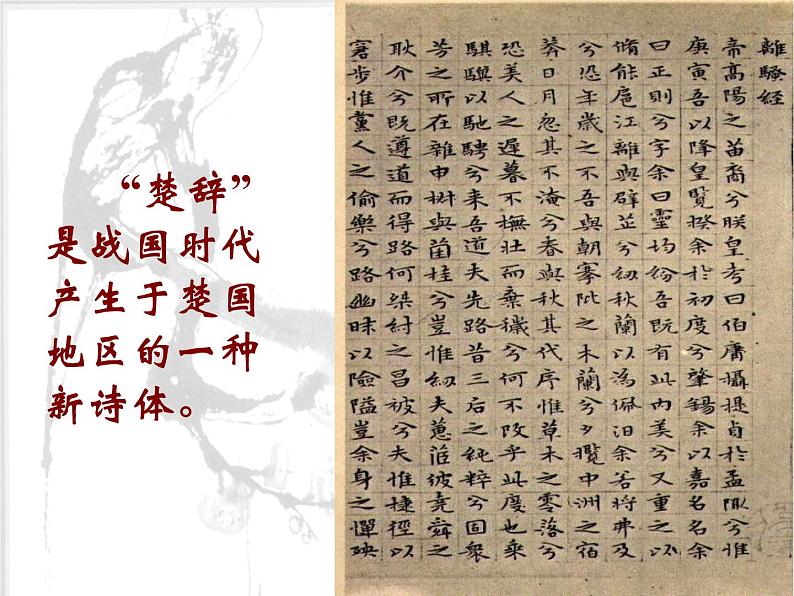 “楚辞”
是战国时代
产生于楚国
地区的一种
新诗体。
離騷經
帝高陽之苗裔兮朕皇考曰伯庸攝提貞於孟陬兮惟
庚寅吾以降皇覽揆余於初度兮肇錫余以嘉名名余
曰正則兮字余曰靈均紛吾既有此內美兮又重之以
脩能扈江離與辟芷兮紉秋蘭以為佩汨余若將弗及
兮恐年歲之不吾與朝搴阰之木蘭兮夕攬中洲之宿
莽日月忽其不淹兮春與秋其代序惟草木之零落兮
恐美人之遲暮不撫壯而棄穢兮何不改乎此度也乘
騏驥以馳騁兮來吾道夫先路昔三后之純粹兮固衆
芳之所在雜申樹與菌桂兮豈惟紉夫蕙茝彼堯舜之
耿介兮既遵道而得路何桀紂之昌被兮夫惟捷徑以
窘步惟黨人之偷樂兮路幽昧以險隘豈余身之憚殃